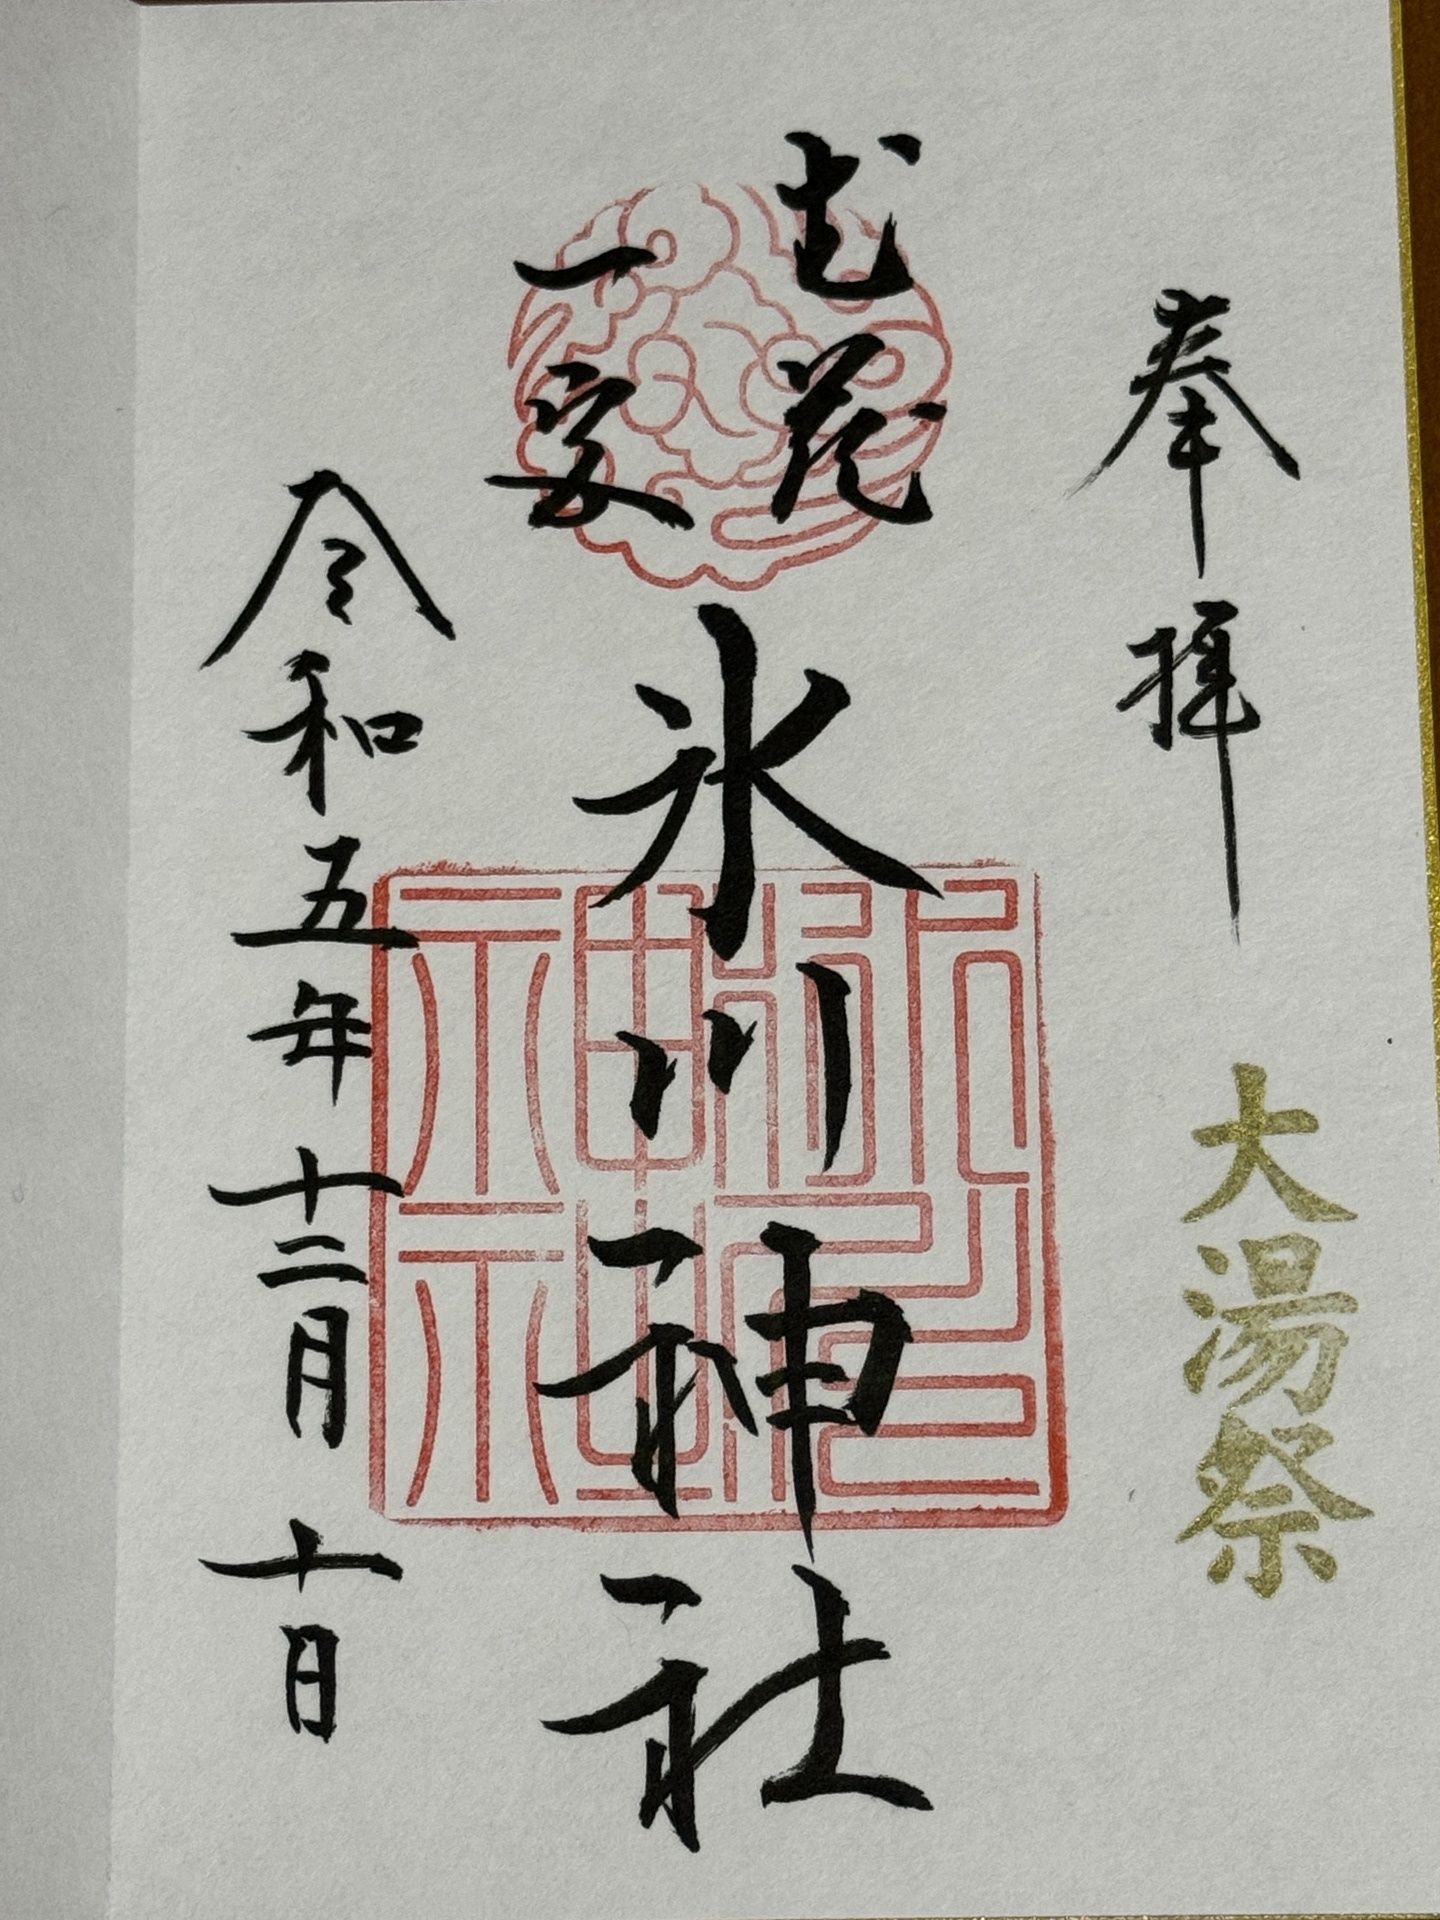 奉拝
大湯祭
武蔵
一宮
氷川神社
令和五年十二月十日
氷川神社